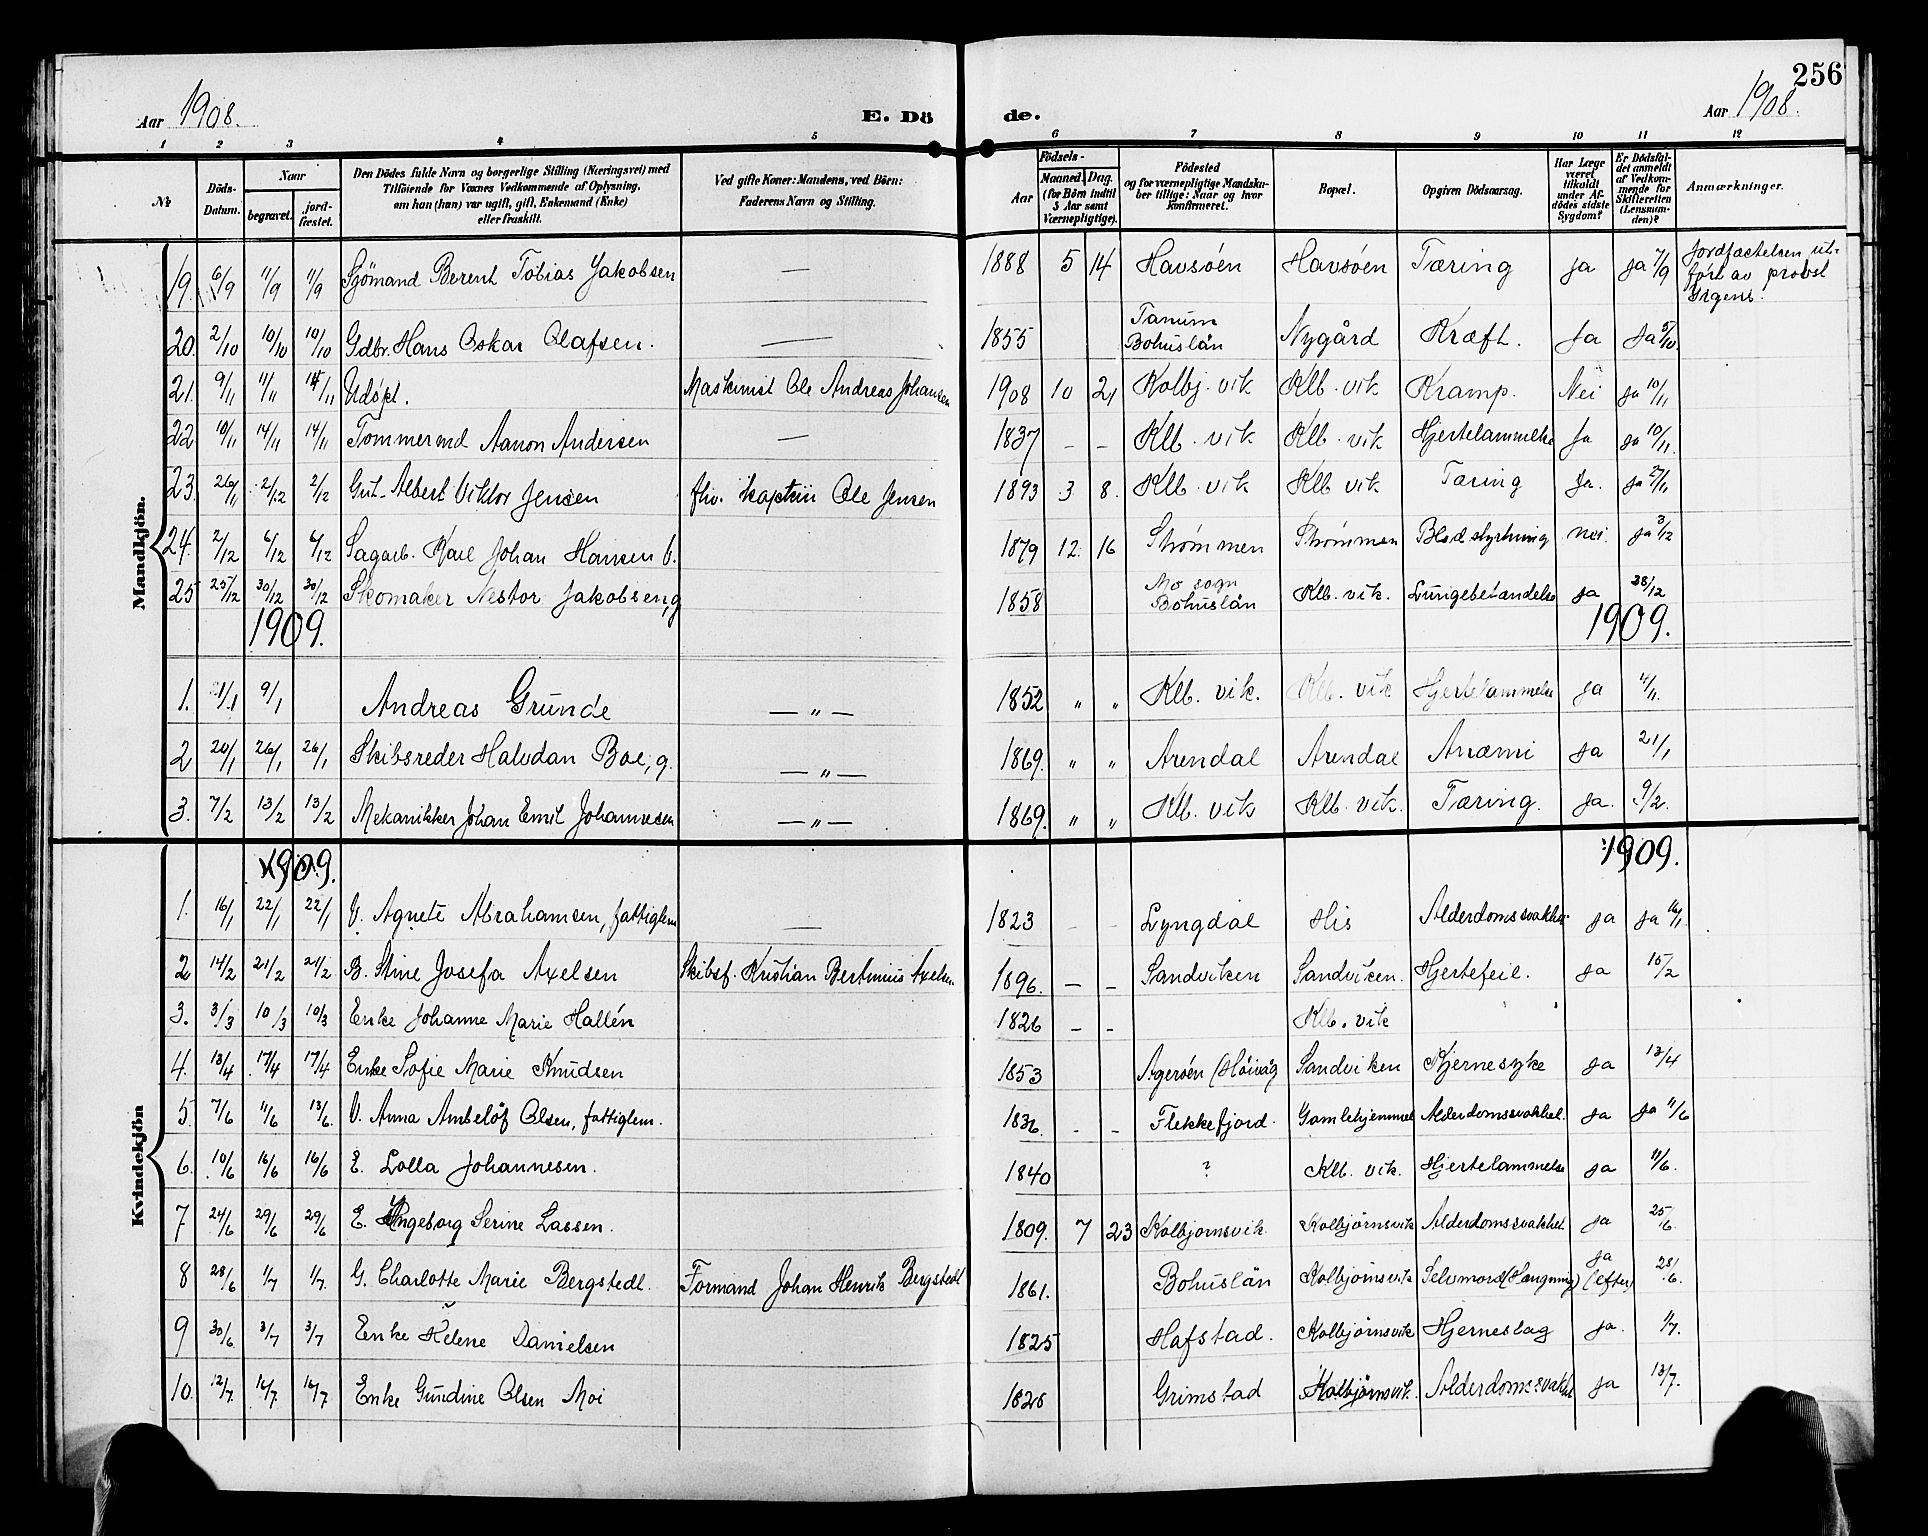 256
Aar 1908. E. Dö de. Aar 1908.
1 2 3 4 5 6 7 8 9 10 11 12
№
Döds-Datum.
Naar
begravet. jord-fæstet.
Den Dödes fulde Navn og borgerlige Stilling (Næringsvei) med
Tilföiende for Voxnes Vedkommende af Oplysning,
om han (hun) var ugift, gift, Enkemand (Enke)
eller fraskilt.
Ved gifte Koner: Mandens, ved Börn:
Faderens Navn og Stilling.
Födsels-
Aar Maaned. Dag.
(for Börn indtil
5 Aar samt
Værnepligtige).
Födested
og for værnepligtige Mandska-
ber tillige: Naar og hvor
konfirmeret.
Bopæl.
Opgiven Dödsaarsag.
Har Læge
været
tilkaldt
under Af-
dödes sidste
Sygdom?
Er Dödsfal-
det anmeldt
af Vedkom-
mende for
Skifteretten
(Lensman-
den)?
Anmærkninger.
Mandkjön.
19. 6/9 11/9 11/9 Sjömand Berent Tobias Jakobsen — 1888 5 14 Havsöen Havsöen Tæring Ja Ja 7/9 Jordfæstelsen ut-
fört av provst
20. 2/10 10/10 10/10 Gdbr. Hans Oskar Olafsen. — 1855 Tanum Bohuslän Nygård Kræft. Ja Ja 5/10.
21. 9/11 11/11 14/11 Udöpt. Maskinist Ole Andreas Johansen 1908 10 21 Kolbj. vik Klb. vik Kramp. Nei Ja 10/11
22 10/11 14/11 14/11 Tömmermd Aanon Andersen — 1837 - - Klb. vik Klb. vik Hjertelammelse Ja Ja 10/11.
23. 26/11 2/12 2/12 Gut. Albert Viktor Jensen fhv. kaptein Ole Jensen 1893 3 8. Klb. vik Klb vik Tæring Ja. Ja 27/11
24. 2/12 6/12 6/12 Sagarb. Karl Johan Hansen U. 1879 12. 16 Strømmen Strømmen Blodstyrtning nei. Ja 3/12
25 25/12 30/12 30/12 Skomaker Nestor Jakobsen, g 1858 Mo sogn Bohuslän Klb. vik. Lungebetændelse Ja 28/12
1909. 1909.
1. 1/1 9/1 Andreas Grunde — " — 1852 " " Klb. vik. Klb. vik Hjertelammelse Ja 4/1.
2 20/1 26/1 26/1 Skibsreder Halvdan Boe, g. — " — 1869. " " Arendal Arendal Anæmi Ja 21/1
3. 7/2 13/2 13/2 Mekanikker Johan Emil Johannesen — " — 1869. " " Klb. vik Klb. vik. Tæring. Ja. 9/2.
Kvindekjön
1909. 1909.
1. 16/1 22/1 22/1 U. Agnete Abrahamsen, fattiglem — 1823 - - Lyngdal His Alderdomssvakhet Ja Ja 16/1.
2 14/2 21/2 21/2 B. Stine Josefa Axelsen Skibsf. Kristian Bertinius Axelsen 1896. - - Sandviken Sandviken. Hjertefeil. Ja 15/2
3. 3/3 10/3 10/3 Enke Johanne Marie Hallén 1826 - - Klb. vik
4. 13/4 17/4 17/4 Enke Sofie Marie Knudsen 1853 Agerøen (Höivåg Sandviken Hjernesyke Ja 13/4
5 7/6 11/6 13/6. U. Anna Ambelöf Olsen, fattiglem. 1836. - - Flekkefjord. Gamlehjemmet Alderdomssvakhet. Ja Ja 11/6
6. 10/6 16/6 16/6 E. Lolla Johannesen. 1840 ? Klb. vik. Hjertelammelse Ja 11/6.
7 24/6 29/6 29/6 E. Ingeborg Serine Lassen. 1809. 7 23 Kolbjørnsvik. Kolbjørnsvik Alderdomssvakhet Ja 25/6.
8 28/6 1/7 1/7. G. Charlotte Marie Bergstedt. Formand Johan Henrik Bergstedt 1861. Bohuslän Kolbjørnsvik Selvmord (Hængning) Ja (efter) 28/6.
9 30/6 3/7 3/7 Enke Helene Danielsen 1825 Hafstad. Kolbjørnsvik Hjerneslag Ja. 1/7.
10. 12/7 16/7. 16/7 Enke Gundine Olsen Moi 1826 Grimstad Kolbjørnsvik. Alderdomssvakhet Ja 13/7.